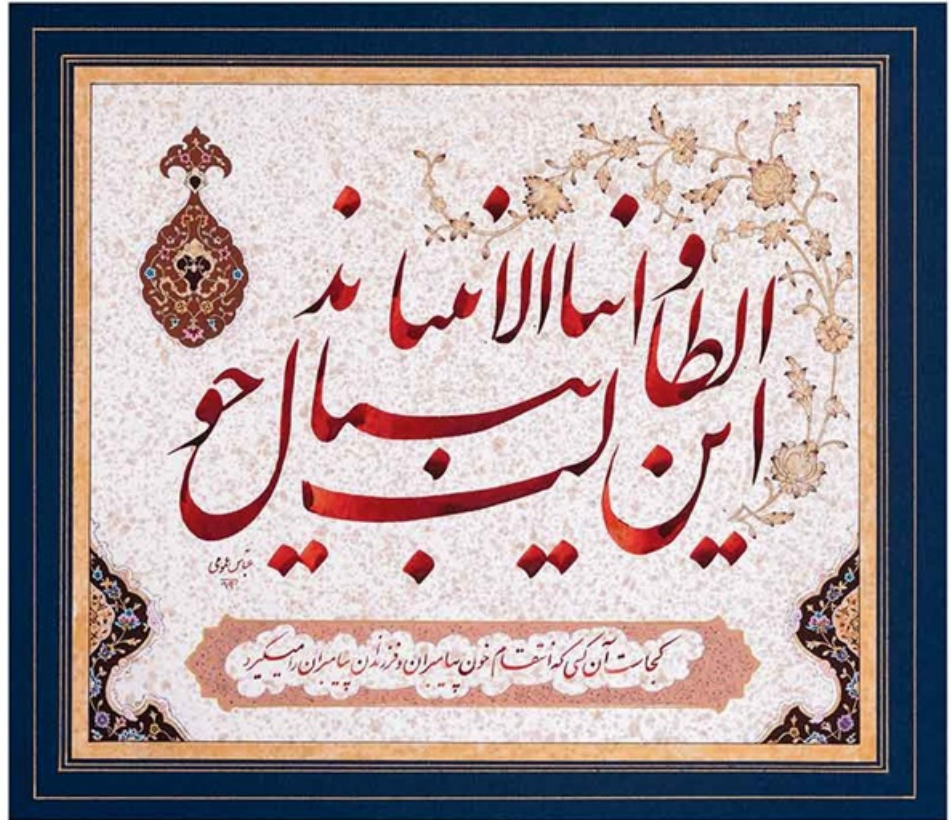 این الطالب بذحول الانبیا و ابنا الانبیا
کجاست آن کسی که انتقام خون پیامبران و فرزندان پیامبران را میگیرد
عباس